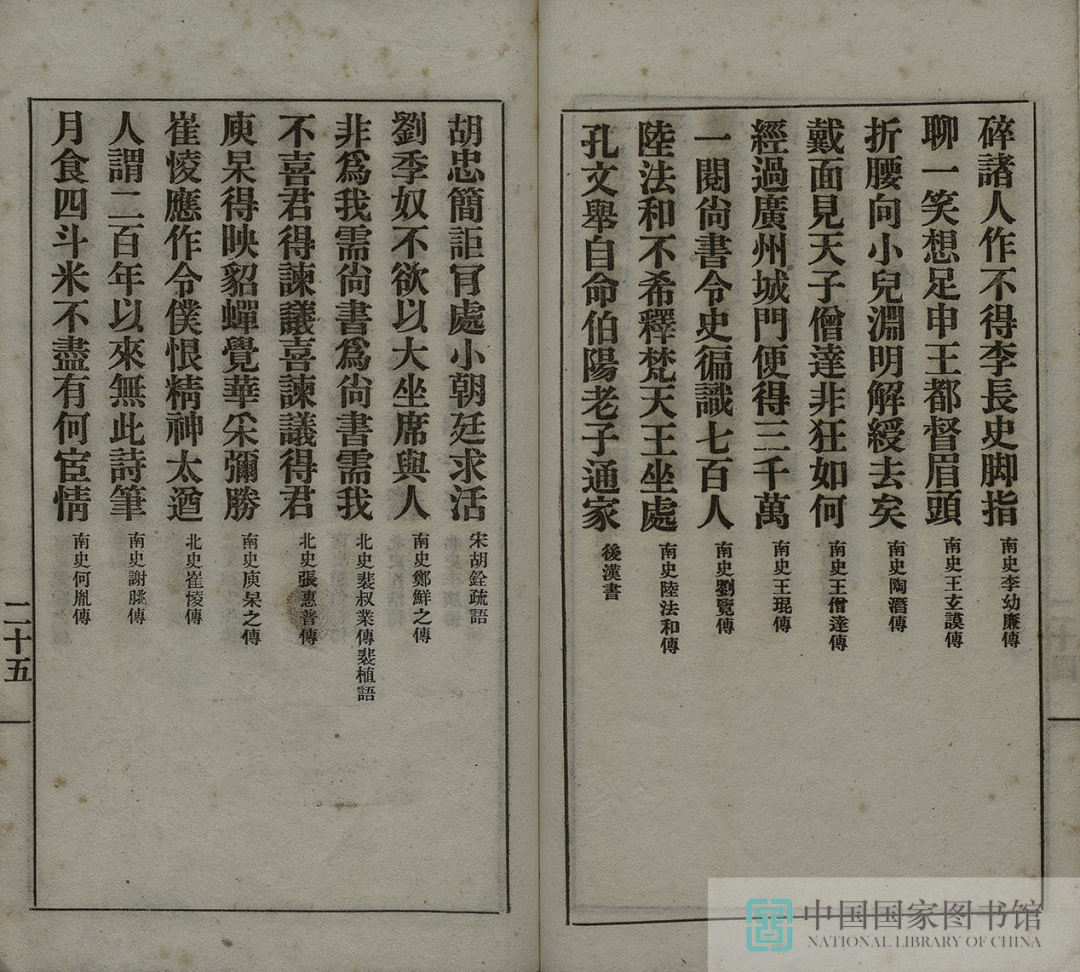 碎諸人作不得李長史脚指 南史李幼廉傳
聊一笑想足申王都督眉頭 南史王玄謨傳
折腰向小兒淵明解綬去矣 南史陶潛傳
戴面見天子僧達非狂如何 南史王僧達傳
經過廣州城門便得三千萬 南史王琨傳
一閱尙書令史徧識七百人 南史劉覽傳
陸法和不希釋梵天王坐處 南史陸法和傳
孔文舉自命伯陽老子通家 後漢書
胡忠簡詎肎處小朝廷求活 宋胡銓疏語
劉季奴不欲以大坐席與人 南史鄭鮮之傳
非爲我需尙書爲尙書需我 北史裴叔業傳裴植語
不喜君得諫議喜諫議得君 北史張惠普傳
庾杲得映貂蟬覺華采彌勝 南史庾杲之傳
崔㥄應作令僕恨精神太遒 北史崔㥄傳
人謂二百年以來無此詩筆 南史謝朓傳
月食四斗米不盡有何宦情 南史何胤傳
二十五
中国国家图书馆
NATIONAL LIBRARY OF CHINA